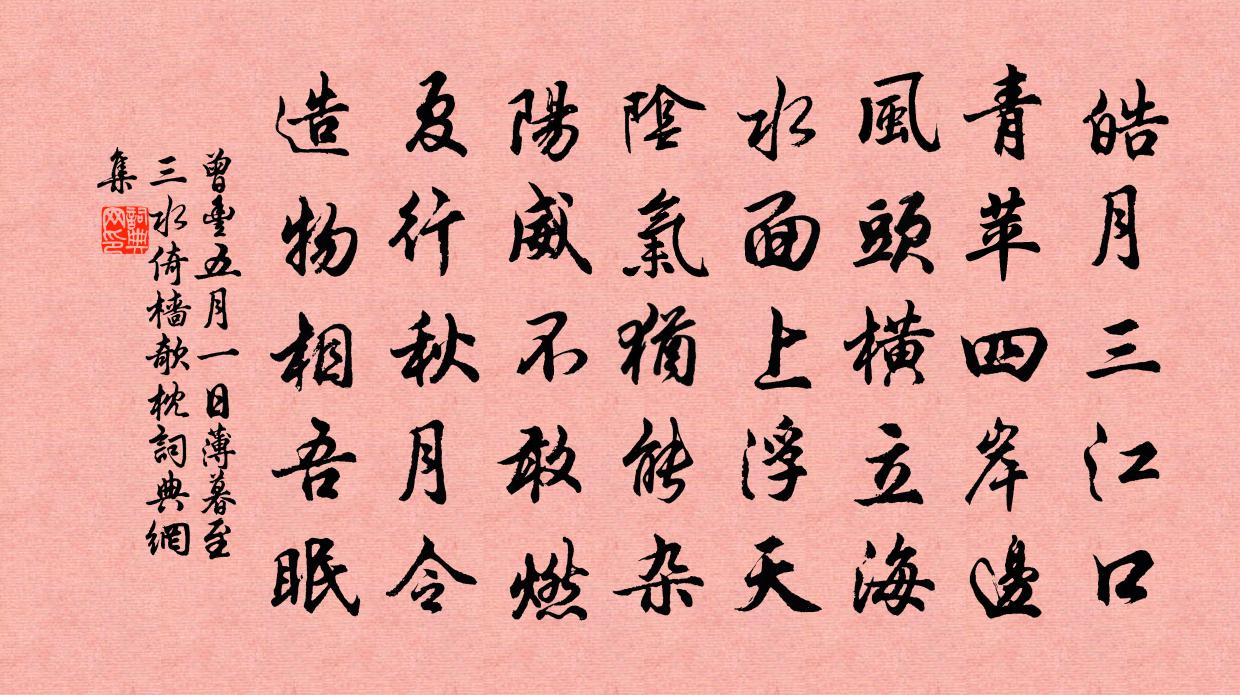 皓月三江口
青苹四岸邊
風頭橫立海
水面上浮天
陰氣猶能杂
陽威不敢燃
夏行秋月令
造物相吾眠
曾豐五月一日薄暮至
三水倚檣欹枕詞典網
集
詞典网印